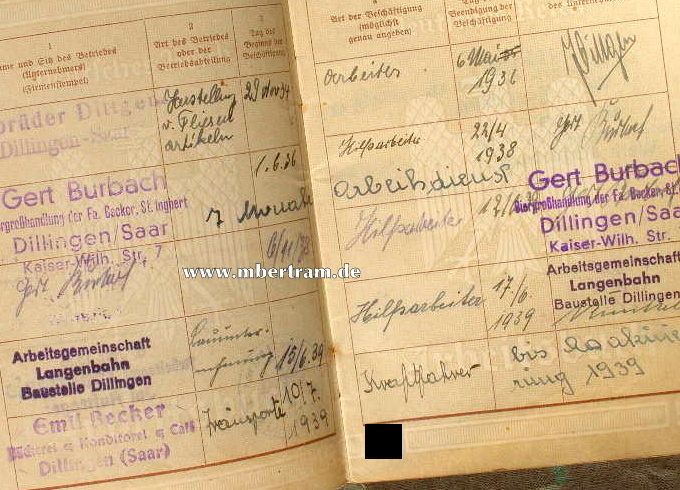 1
me und Sitz des Betriebes
(Unternehmers)
(Firmenstempel)
2
Art des Betriebes
oder der
Betriebsabteilung
3
Tag des
Beginns der
Beschäftigung
brüder Dittgen
Dillingen-Saar
Herstellung
v. Fliesen
artikeln
Gert Burbach
Biergroßhandlung der Fa. Becker, St. Ingbert
Dillingen/Saar
Kaiser-Wilh. Str. 7
1.6.36
7 Monate
www.mbertram.de
Arbeitsgemeinschaft
Langenbahn
Baustelle Dillingen
15/6.39
Emil Becker
Bäckerei & Konditorei & Café
Dillingen (Saar)
Transporte
10/7.
1939
4
Art der Beschäftigung
(möglichst
genau angeben)
Tag der
Beendigung der
Beschäftigung
des Unternehm
Arbeiter
6 Mai
1936
Hilfsarbeiter
22/4
1938
Arbeitsdienst
Hilfsarbeiter
Gert Burbach
Biergroßhandlung der Fa. Becker, St.
Dillingen/Saa
Kaiser-Wilh. Str.
Hilfsarbeiter
17./6.
1939
Arbeitsgemeinschaft
Langenbahn
Baustelle Dillingen
Kraftfahrer
bis
rung 1939